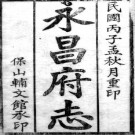 民國丙子孟秋月重印
永昌府志
保山輔文館承印